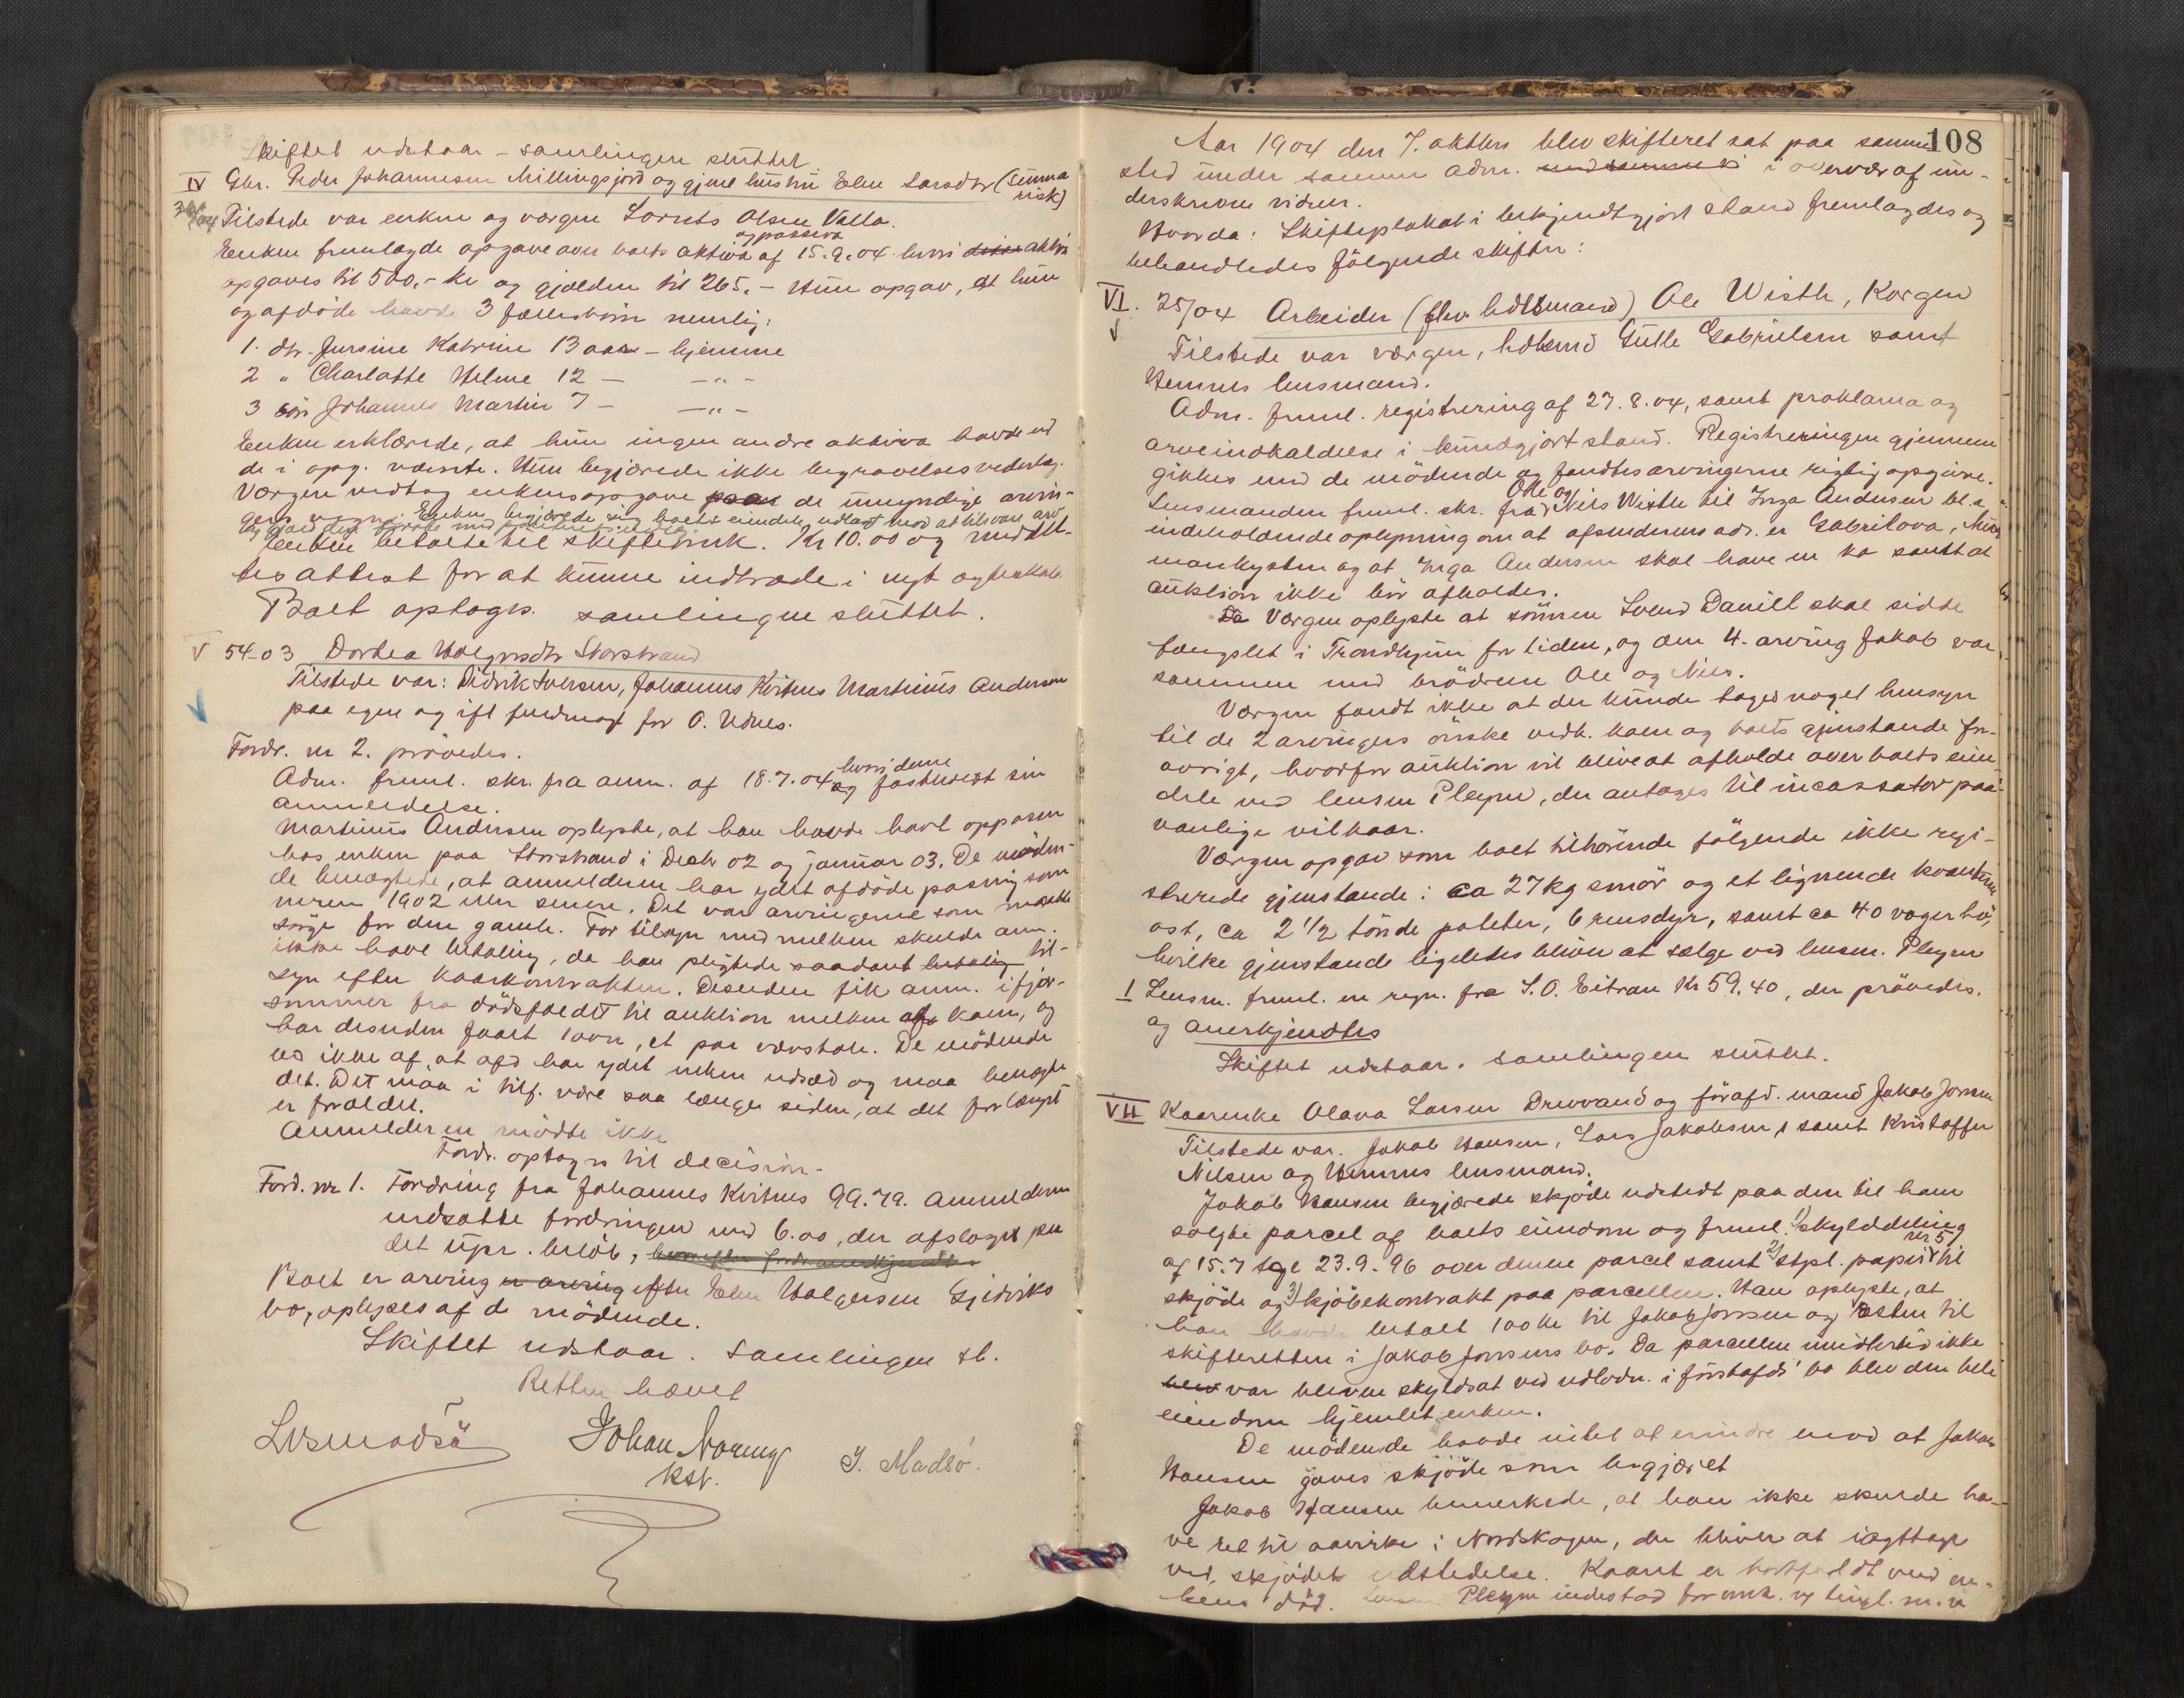 Skiftet udstaar – samlingen sluttet.
IV Gbr. Peder Johannesen Millingsjord og gjenl hustru Elen Larsdtr (Summa
risk)
36/04 Tilstede var enken og vergen Lorents Olsen Valla.
og passiva
Enken fremlagde opgave over boets aktiva af 15.9.04 hvori disse aktiva
opgaves til 500,- kr og gjælden til 265,- Hun opgav, at hun
og afdøde havde 3 fællesbørn nemlig:
1. dtr. Jursine Katrine 13 aar – hjemme
2 " Charlotte Helene 12 – –"–
3 søn Johannes Martin 7 – –"–
Enken erklærede, at hun ingen andre aktiva havde end
de i opg. nævnte. Hun begjærede ikke begravelsesvederlag.
Værgen vedtog enkens opgave paa de umyndige arvin-
gers vegne. Enken begjærede sig boets eiendele udlagt mod at tilsvare arv
og gjæld
Enken betalte til skifteomk. Kr 10.00 og meddel-
tes attest for at kunne indtræde i nyt ægteskab.
Boet optoges. samlingen sluttet.
V 54-03 Dortea Holgersdtr Storstrand
Tilstede var: Didrik Iversen, Johannes Kvitnes Martinus Andersen
paa egne og ifl fuldmagt for O. Udnes.
Fordr. nr 2. prøvedes.
Adm. freml. skr. fra anm. af 18.7.04 hvori denne og fastholdt sin
anmeldelse.
Martinus Andersen oplyste, at han havde havt oppasser
hos enken paa Storstrand i Decbr 02 og januar 03. De møden-
de benægtede, at anmelderen har ydet afdøde pasning som
meren 1902 eller senere. Det var arvingerne som maatte
sørge for den gamle. For tilsyn med melken skulde anm.
ikke have betaling, da han pligtede saadant betaling til-
syn efter kaarkontrakten. Desuden fik anm. ifjor-
sommer fra dødsfaldet til auktion melken af koen, og
har desuden faaet 1 ovn, et par vevstole. De mødende
ved ikke af, at afd har ydet nelken udsæd og maa benægte
det. Det maa i tilf. være saa længe siden, at det forlængst
er forældet.
Anmelderen mødte ikke
Fordr. optages til decision.
Ford. nr 1. Fordring fra Johannes Kvitnes 99.79. Anmelderen
nedsatte fordringen med 6.00, der afslages paa
det opr. beløb, hvorefter fordr anerkjendtes.
Boet er arving er arving efter Elen Holgersen Gjeviks
bo, oplyses af de mødende.
Skiftet udstaar. Samlingen sl.
Retten hævet
Johan Noreng
kst.
J. Madsø.
108
Aar 1904 den 7. oktbr blev skifteret sat paa samme
sted under samme adm. i overvær af un-
derskrevne vidner.
Hvorda: Skifteplakat i bekjendtgjort stand fremlagdes og
behandledes følgende skifter:
VI. 25/04 Arbeider (flv. bdtsmand) Ole Wisth, Korgen
Tilstede var vergen, hdlsmd Gulle Gabrielsen samt
Hemnes lensmand.
Adm. freml. registrering af 27.8.04, samt proklama og
arveindkaldelse i kundgjort stand. Registreringen gjennem
gikkes med de mødende og fandtes arvingerne rigtig opgivne.
Lensmanden freml. skr. fra Ole og Nils Wisth til Inga Andersen bl.a
indeholdende oplysning om at afsenderens adr. er Gabrilova, Mur
mankysten og at Inga Andersen skal have en ko samt at
auktion ikke bør afholdes.
Da Værgen oplyste at sønnen Svend Daniel skal sidde
fængslet i Trondhjem for tiden, og den 4. arving Jakob var
sammen med brødrene Ole og Nils.
Værgen fandt ikke at der kunde tages noget hensyn
til de 2 arvingers ønske vedk. koen og boets gjenstande for-
øvrigt, hvorfor auktion vil blive at afholde over boets eien
dele ved lensm Pleym, der antages til incassator paa
vanlige vilkaar.
Værgen opgav som boet tilhørende følgende ikke regi-
strerede gjenstande: ca 27 kg smør og et lignende kvantum
ost, ca 2 1/2 tønde poteter, 6 rensdyr, samt ca 40 voger hø,
hvilke gjenstande ligeledes bliver at sælge ved lensm. Pleym
1 Lensm. freml. en regn. fra S. O. Eitran Kr 59.40, der prøvedes.
og anerkjendtes
Skiftet udstaar. samlingen sluttet.
VII Kaarenke Olava Larsen Drevvand og førafd. mand Jakob Jonsen
Tilstede var. Jakob Hansen, Lars Jakobsen, samt Kristoffer
Nilsen og Hemnes lensmand.
Jakob Hansen begjærede skjøde udstedt paa den til ham
solgte parcel af boets eiendom og freml. 1) skylddeling
af 15.7 tgl 23.9.96 over denne parcel samt 2) stpl. papir nr 5 til
skjøde og 3) kjøbekontrakt paa parcellen. Han oplyste, at
han havde betalt 100 kr til Jakob Jonsen og resten til
skifteretten i Jakob Jonsens bo. Da parcellen imidlertid ikke
blev var bleven skyldsat ved udlodn. i førstafds' bo blev den hele
eiendom hjemlet enken.
De mødende havde intet at erindre mod at Jakob
Hansen gaves skjøde som begjæret
Jakob Hansen bemerkede, at han ikke skulde ha-
ve ret til aavirke i Nordskogen, der bliver at iagttage
ved skjødets udstedelse. Kaaret er bortfaldt ved en-
kens død. lensm Pleym indestod for omk. og tingl. m.v